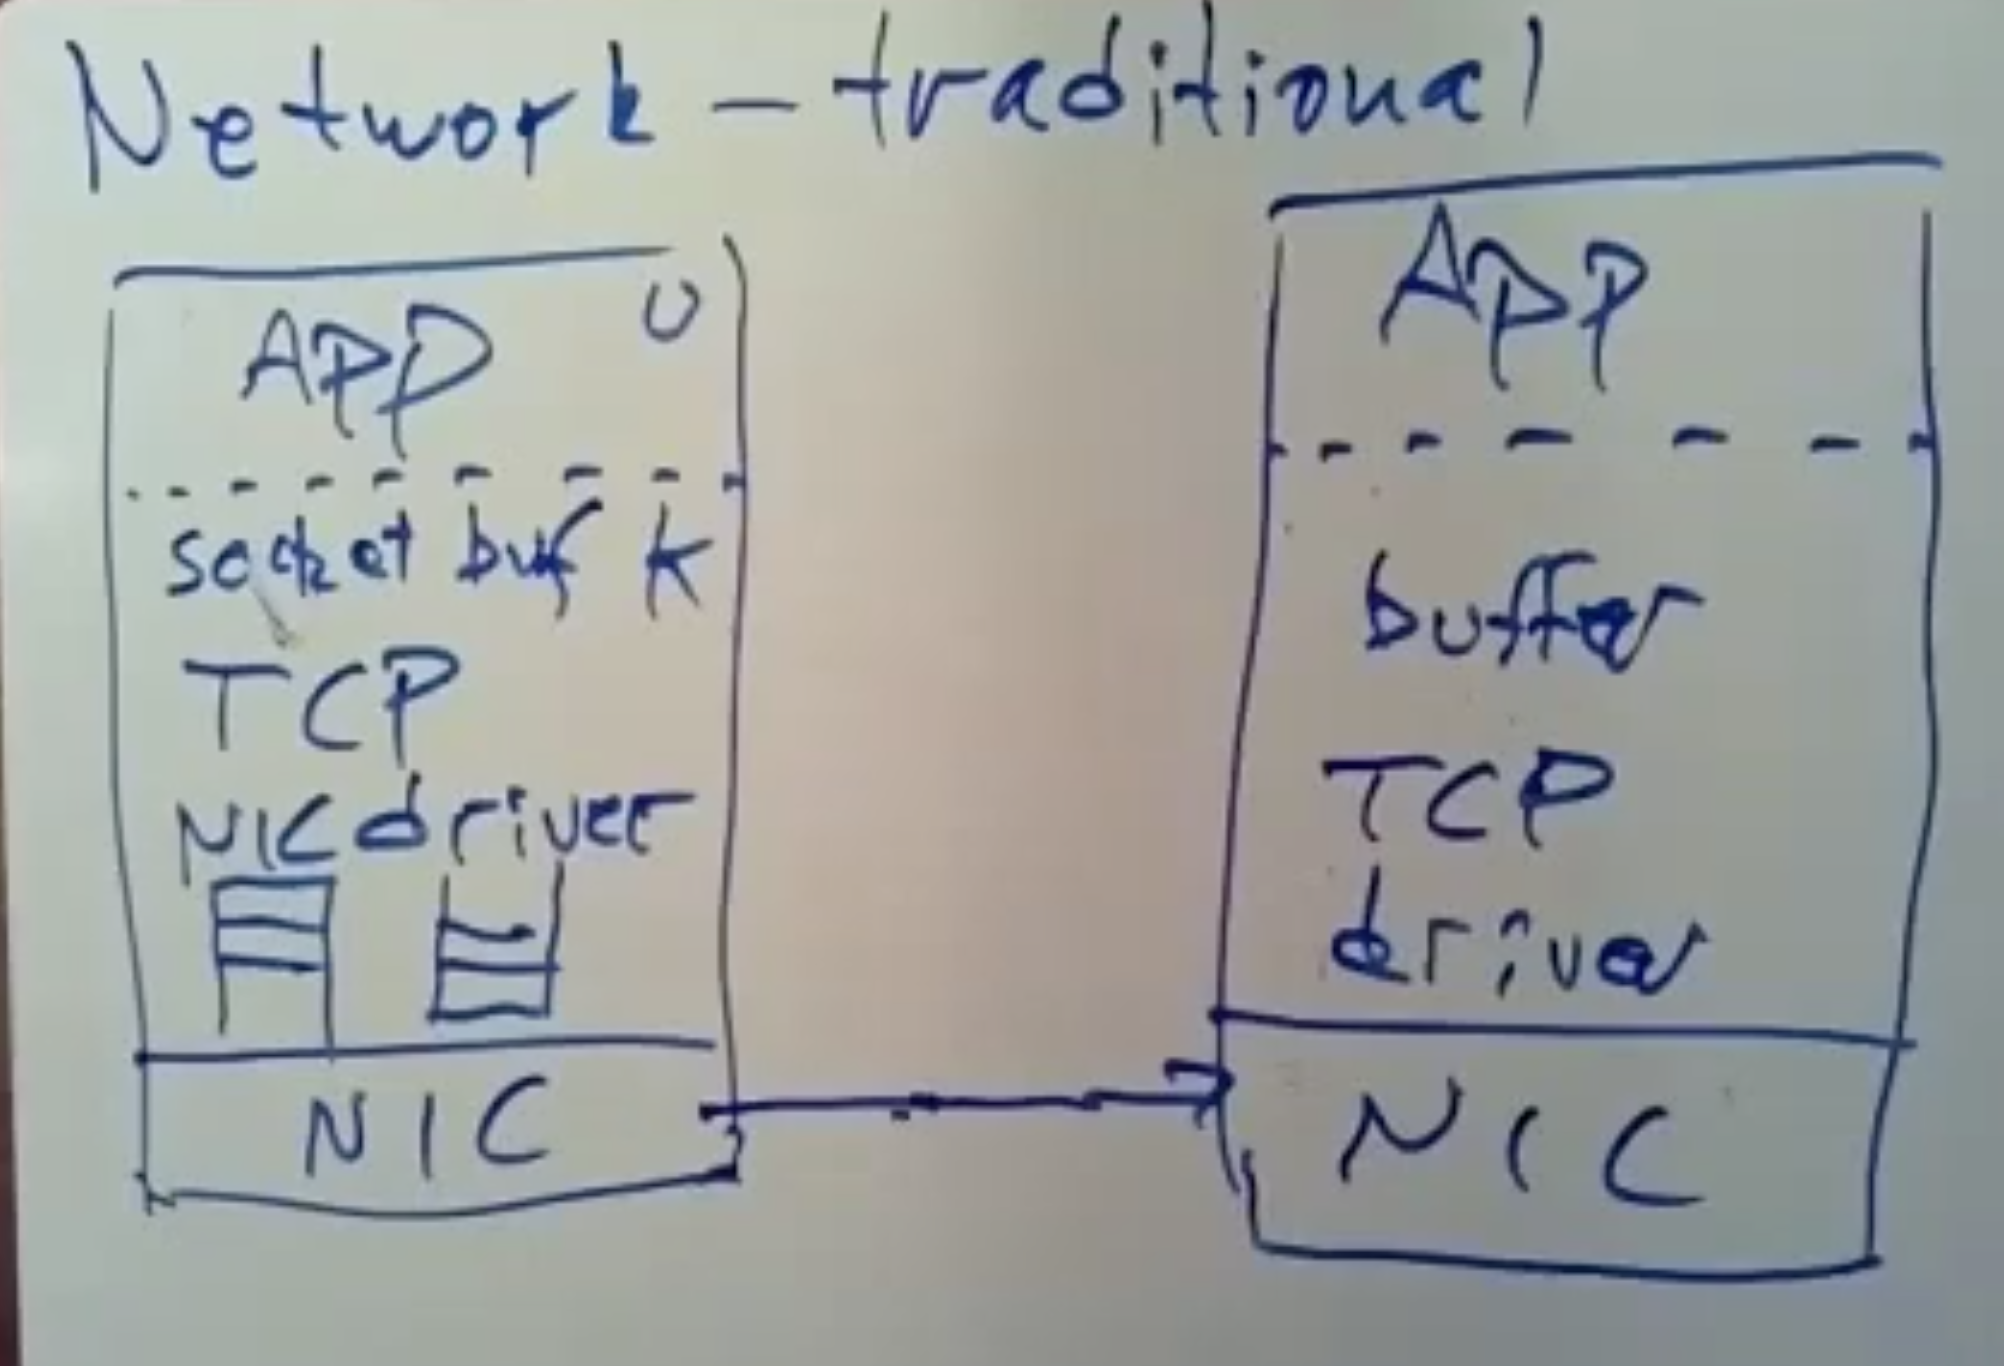 Network - traditional
APP U
socket buf K
TCP
NIC driver
NIC
APP
buffer
TCP
driver
NIC